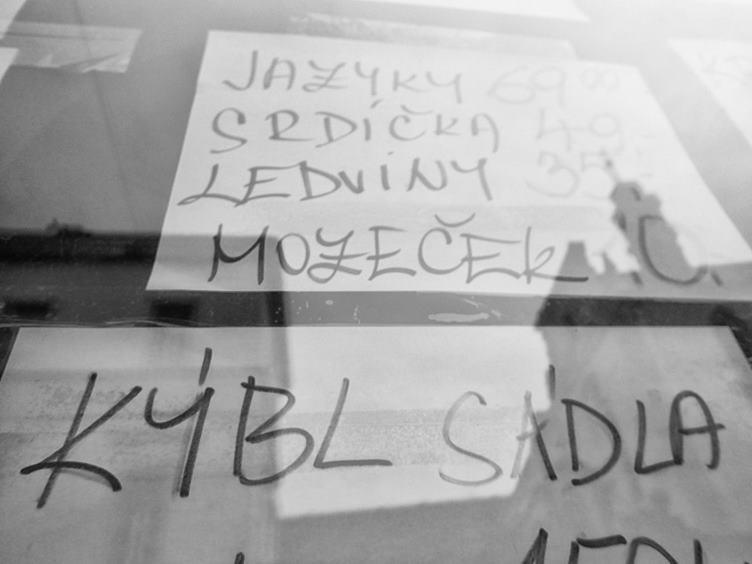 JAZYKY 69 00
SRDÍČKA 49.-
LEDVINY 35
MOZEČEK
KÝBL SÁDLA